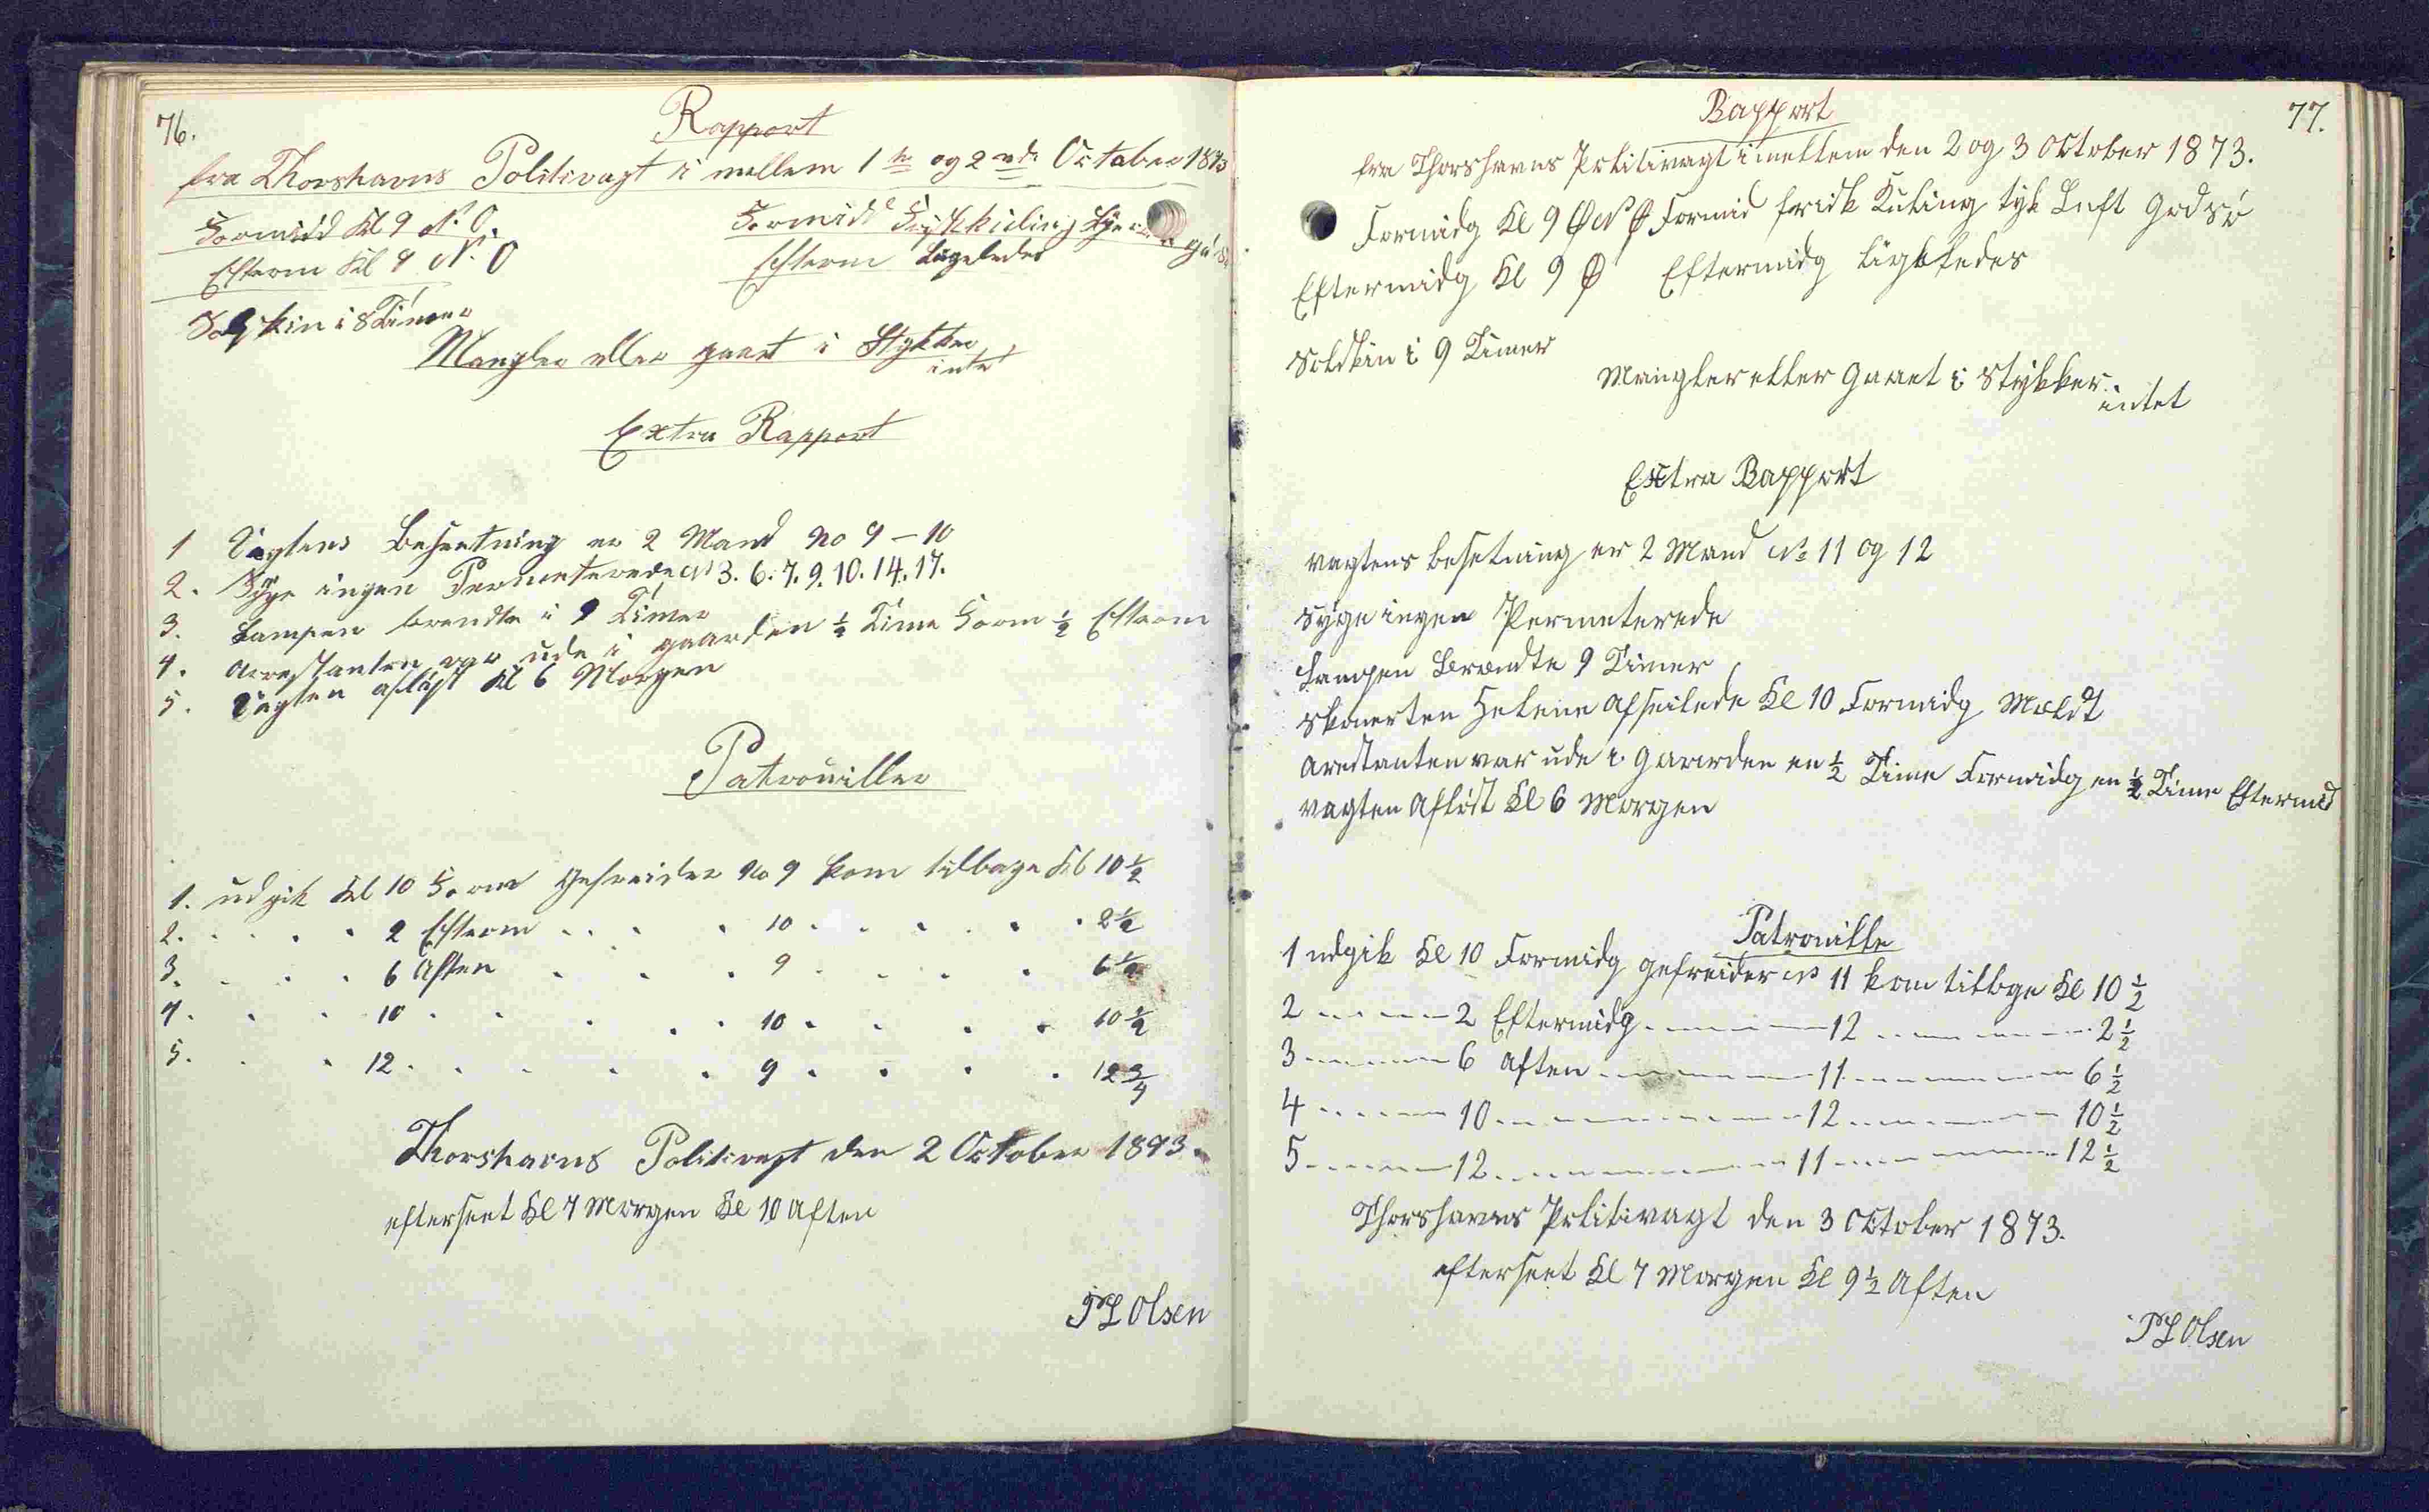 76.
Rapport
fra Thorshavns Politivagt i mellem 1ste og 2nde October 1873
Formidd Kl 9 N. O.
Formidd Frisk kuling
Efterm Kl 9 N. O
Efterm Ligeledes
Solskin i 8 Timer
Mangler eller gaaet i Stykker
intet
Extra Rapport
1 Vagtens Besætning er 2 Mand No 9 – 10
2. Syge ingen Permeterede No 3. 6. 7. 9. 10. 14. 17.
3. Lampen brendte i 9 Timer
4. Arrestanten var ude i gaarden ½ Time Form ½ Efterm
5. Vagten afløst Kl 6 Morgen
Patrouiller
1. udgik Kl 10 Form Gefreider No 9 kom tilbage Kl 10 ½
2. . . . 2 Efterm . . . 10 . . . . . 2 ½
3. . . . 6 Aften . . . 9 . . . . 6 ½
4. . . 10 . . . . . 10 . . . . 10 ½
5. . . 12 . . . . . 9 . . . . 12 3/4
Thorshavns Politivagt den 2 October 1873.
efterseet Kl 7 Morgen Kl 10 Aften
PL Olsen
77.
Rapport
fra Thorshavns Politivagt imellem den 2 og 3 October 1873.
Formidg Kl 9 Ø N Ø Formid frisk Kuling tyk Luft God Sø
Eftermidg Kl 9 Ø Eftermidg ligeledes
Solskin i 9 Timer
Mangler eller Gaaet i Stykker.
intet
Extra Rapport
vagtens besetning er 2 Mand No 11 og 12
Syge ingen Permeterede
Lampen Brændte 9 Timer
Skonerten Helene Afseilede Kl 10 Formidg Meldt
Arestanten var ude i Gaarden en ½ Time Formidg en ½ Time Eftermid
vagten Afløst Kl 6 Morgen
Patrouille
1 udgik Kl 10 Formidg gefreider No 11 kom tilbge Kl 10 ½
2 - - - - 2 Eftermidg - - - - 12 - - - - 2 ½
3 - - - - 6 Aften - - - - 11 - - - - 6 ½
4 - - - - 10 - - - - 12 - - - - 10 ½
5 - - - - 12 - - - - 11 - - - - 12 ½
Thorshavns Politivagt den 3 October 1873.
efterseet Kl 7 Morgen Kl 9 ½ Aften
PL Olsen